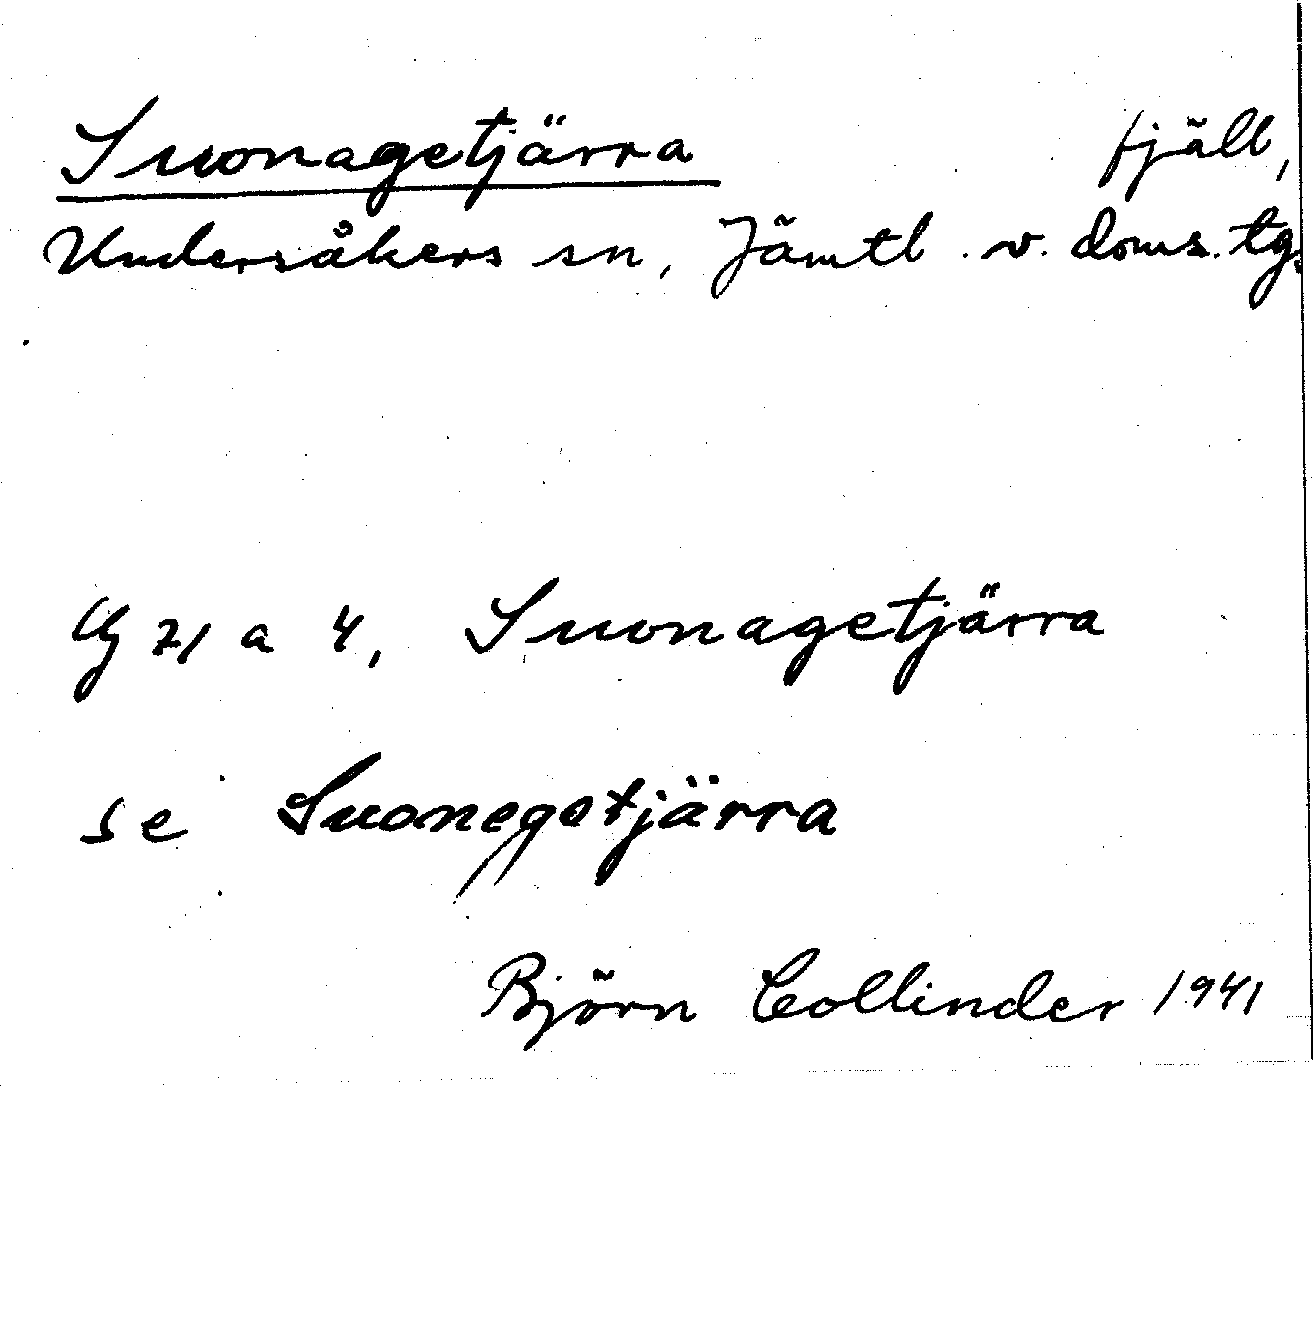 Suonagetjärra fjäll,
Undersåkers sn, Jämtl. v. doms. tg.
71 a 4, Suonagetjärra
se Suonegetjärra
Björn Collinder 1941